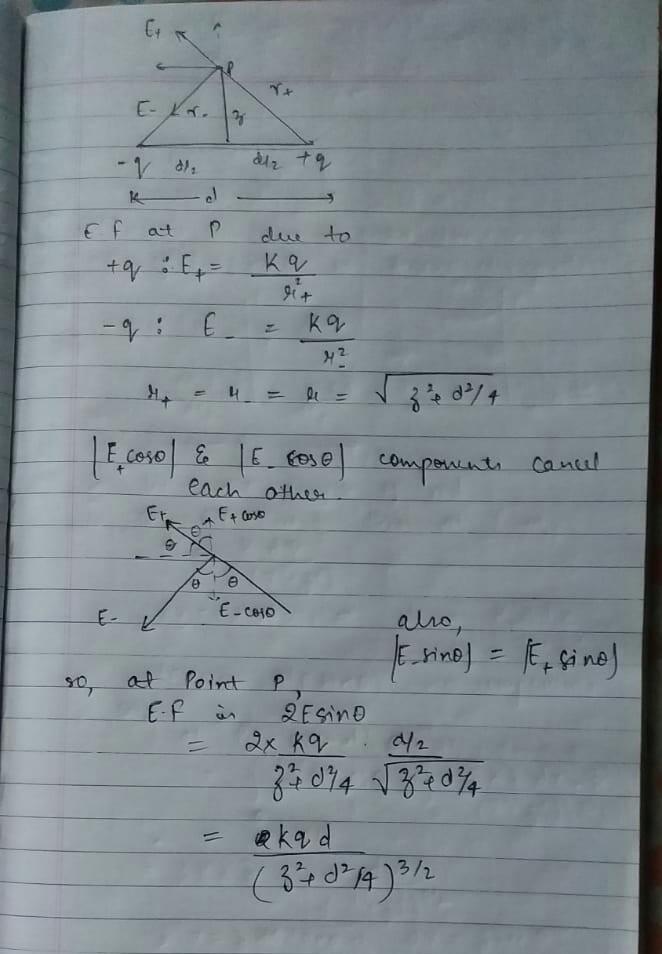 E+
P
r+
E-
r-
z
-q d/2 d/2 +q
d
E F at P due to
+q : E+ = Kq / r²+
-q : E- = Kq / r²-
r+ = r- = r = √(z² + d²/4)
|E+ cosθ| & |E- cosθ| components cancel
each other.
E+ E+ cosθ
θ θ
θ θ
E- E- cosθ
also,
|E- sinθ| = |E+ sinθ|
so, at Point P,
E.F is 2E sinθ
= 2 x kq / (z² + d²/4) . d/2 / √(z² + d²/4)
= kqd / (z² + d²/4)^3/2